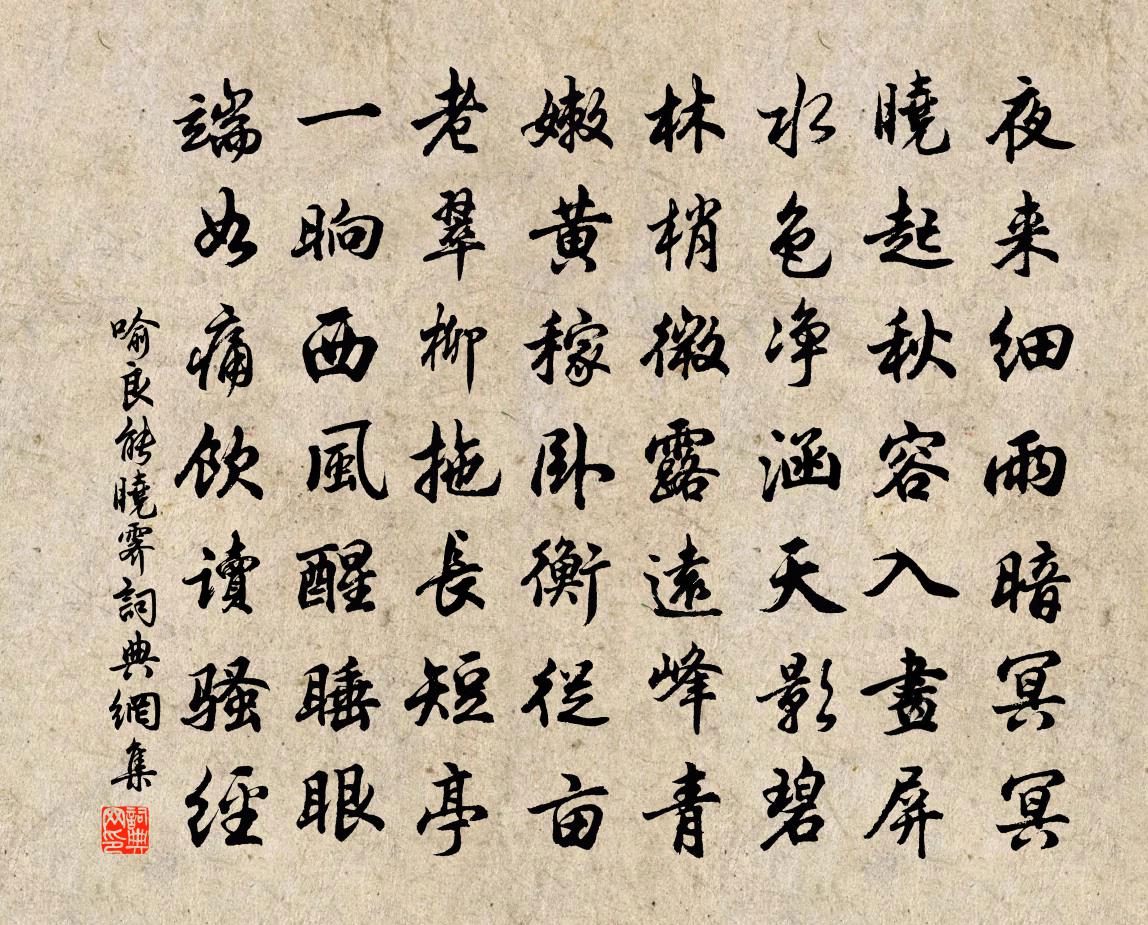 夜来细雨暗冥冥
曉起秋容入畫屏
水色净涵天影碧
林梢微露遠峰青
嫩黄稼卧衡従亩
老翠柳拖長短亭
一晌西風醒睡眼
端如痛飲讀騷經
喻良能曉霽詞典網集
詞典網印